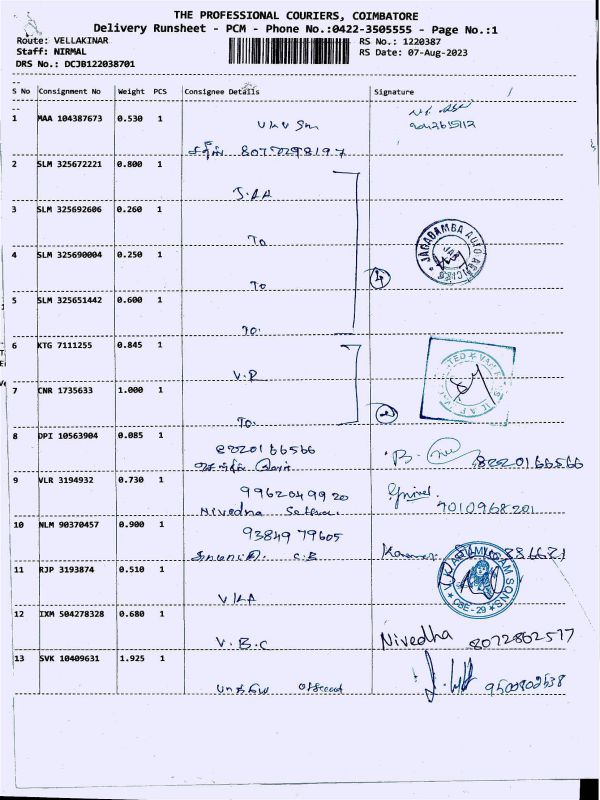 THE PROFESSIONAL COURIERS, COIMBATORE
Delivery Runsheet - PCM - Phone No.:0422-3505555 - Page No.:1
Route: VELLAKINAR
RS No.: 1220387
Staff: NIRMAL
RS Date: 07-Aug-2023
DRS No.: DCJB122038701
S No Consignment No Weight PCS Consignee Details Signature
1 MAA 104387673 0.530 1
2 SLM 325672221 0.800 1
J.AA
3 SLM 325692606 0.260 1
To
JAGADAMBA AUTO AGENCIES
4 SLM 325690004 0.250 1
To
4
5 SLM 325651442 0.600 1
To.
6 KTG 7111255 0.845 1
V.P
7 CNR 1735633 1.000 1
To.
8 DPI 10563904 0.085 1
8220166566
B. 8220166566
9 VLR 3194932 0.730 1
9962049920
Nivedha
9010968201
10 NLM 90370457 0.900 1
9384979605
C.B
11 RJP 3193874 0.510 1
VKA
CBE-29
12 IXM 504278328 0.680 1
V.B.C
Nivedha 8072862577
13 SVK 10409631 1.925 1
9500802538